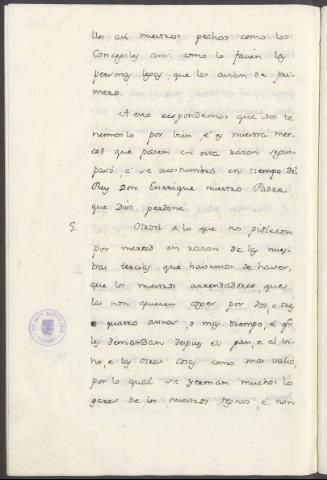 llos asi nuestros pechos como los
Concegiles ansi como lo facien las
personas legas, que los avian de pri-
mero.
A esto respondemos que nos te
nemoslo por bien é es nuestra mer-
ced que pasen en esta razon segun
pasó, é se acostumbró en tiempo del
Rey Don Enrrique nuestro Padre
que Dios perdone.
5. Otrosi a lo que nos pidieron
por merced en razon de las nues-
tras tercias que havemos de haver,
que los nuestros arrendadores, que
las non quieren coger por dos, o tres
o quatro annos, o mas tiempo, é que
les demandan depues el pan, e el vi-
no, e las otras cosas como mas valió,
por lo qual se yerman muchos lo
gares de los nuestros regnos, é non